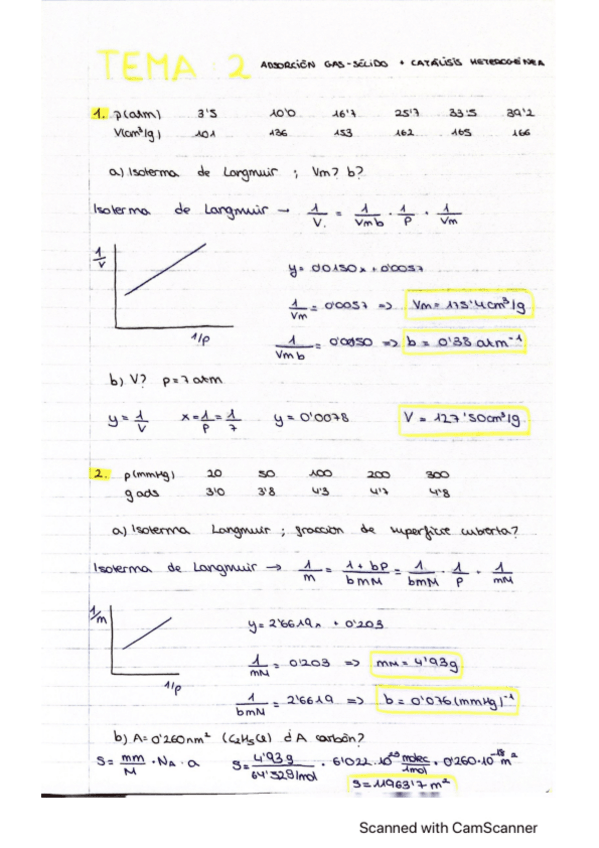 TEMA 2 ADSORCIÓN GAS-SÓLIDO + CATÁLISIS HETEROGÉNEA
1. p(atm) 3'5 10'0 16'7 25'7 33'5 39'2
V(cm³/g) 101 136 153 162 165 166
a) Isoterma de Langmuir ; Vm? b?
Isoterma de Langmuir → 1/V = 1/Vmb · 1/P + 1/Vm
1/V
y = 0'0150x + 0'0057
1/Vm = 0'0057 => Vm = 175'4 cm³/g
1/p
1/Vmb = 0'0150 => b = 0'38 atm⁻¹
b) V? p = 7 atm
y = 1/V x = 1/P = 1/7 y = 0'0078 V = 127'50 cm³/g
2. p(mmHg) 20 50 100 200 300
g ads 3'0 3'8 4'3 4'7 4'8
a) Isoterma Langmuir ; fracción de superficie cubierta?
Isoterma de Langmuir → 1/m = 1+bP/bmM = 1/bmM · 1/P + 1/mM
1/m
y = 2'6619x + 0'203
1/mM = 0'203 => mM = 4'93g
1/p
1/bmM = 2'6619 => b = 0'076 (mmHg)⁻¹
b) A = 0'260nm² (C₂H₅Cl) d A carbón?
S = mm/M · NA · a S = 4'93g/64'528/mol · 6'022·10²³ molec/1mol · 0'260·10⁻¹⁸ m²
S = 11963'7 m²
Scanned with CamScanner